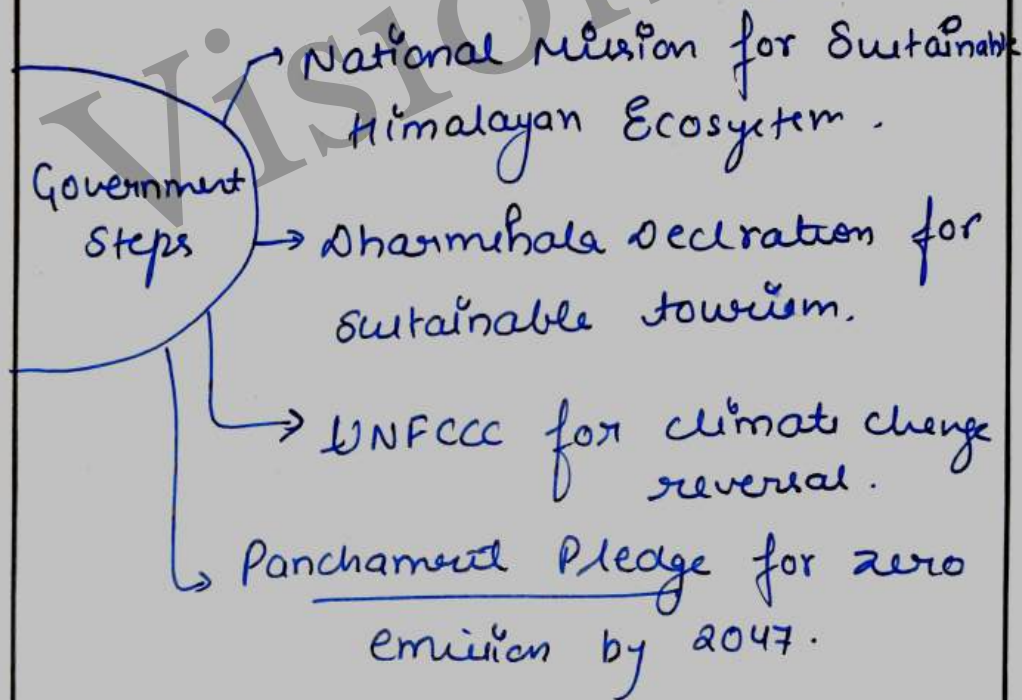 Vision
National Mission for Sustainable
Himalayan Ecosystem.
Government
Steps
Dharmshala Declration for
sustainable tourism.
UNFCCC for climate change
reversal.
Panchamrit Pledge for zero
emission by 2047.